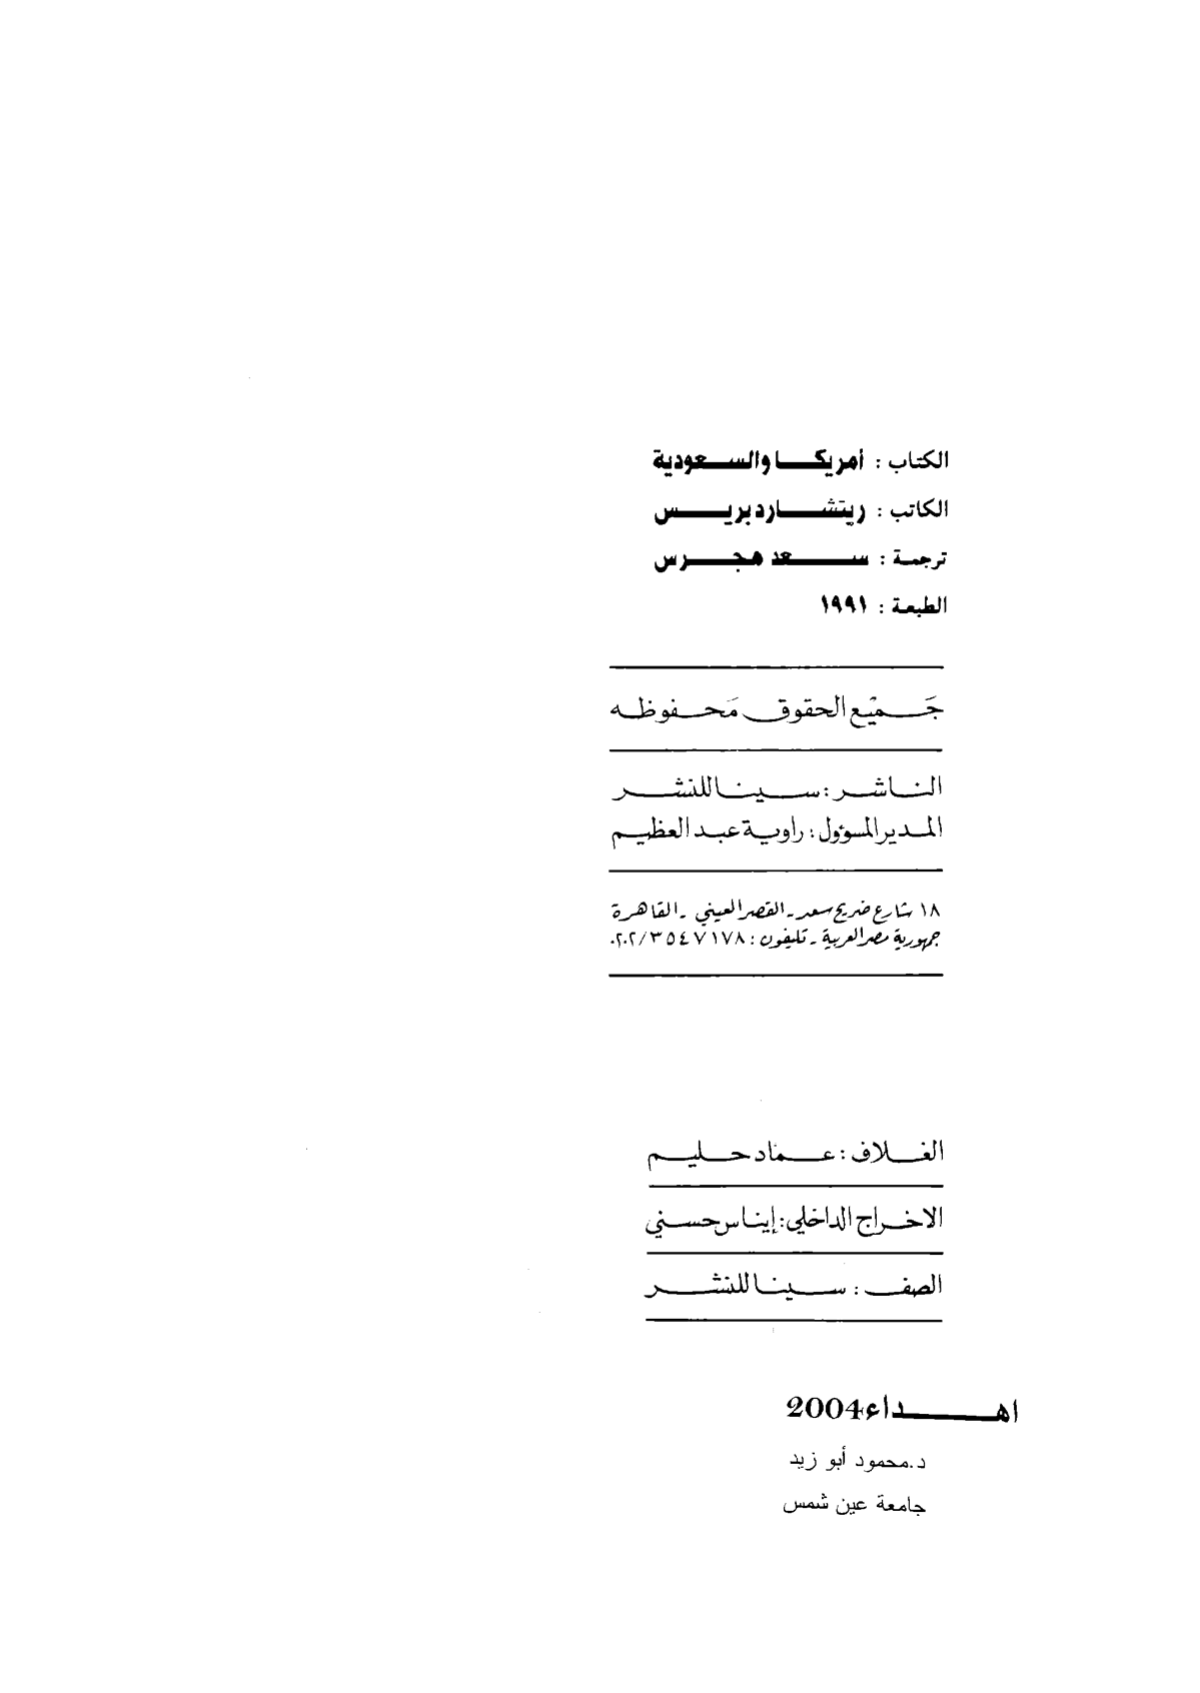 الكتاب : أمريكا والسعودية
الكاتب : ريتشارد بريس
ترجمة : سعد هجرس
الطبعة : ١٩٩١
جَميْع الحقوق مَحفوظه
الناشر : سينا للنشر
المدير المسؤول : راوية عبد العظيم
١٨ شارع ضريح سعد - القصر العيني - القاهرة
جمهورية مصر العربية - تليفون : ٣٥٤٧١٧٨/٢٠٢٠
الغلاف : عماد حليم
الاخراج الداخلي : إيناس حسني
الصف : سينا للنشر
اهداء 2004
د.محمود أبو زيد
جامعة عين شمس